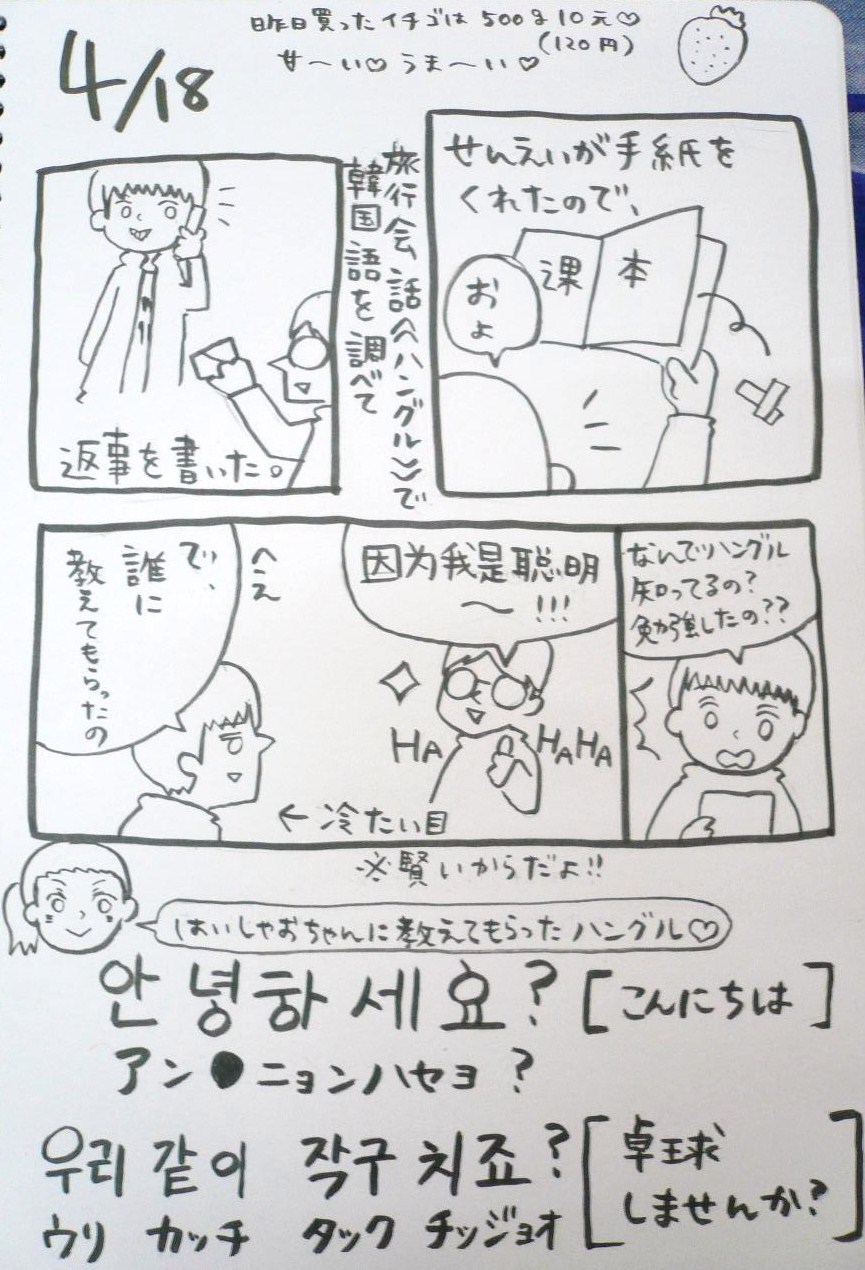 4/18
昨日買ったイチゴは500g10元♡
(120円)
甘〜い♡うま〜い♡
せんえいが手紙を
くれたので、
课本
およ
旅行会話《ハングル》で
韓国語を調べて
返事を書いた。
なんでハングル
知ってるの?
勉強したの??
因为我是聪明
〜!!!
HA HAHA
へえ
で、
誰に
教えてもらったの
←冷たい目
※賢いからだよ!!
はいしゃおちゃんに教えてもらったハングル♡
안녕하세요? [こんにちは]
アン●ニョンハセヨ?
우리 같이 작구 치죠? [卓球
しませんか?]
ウリ カッチ タック チッジョオ